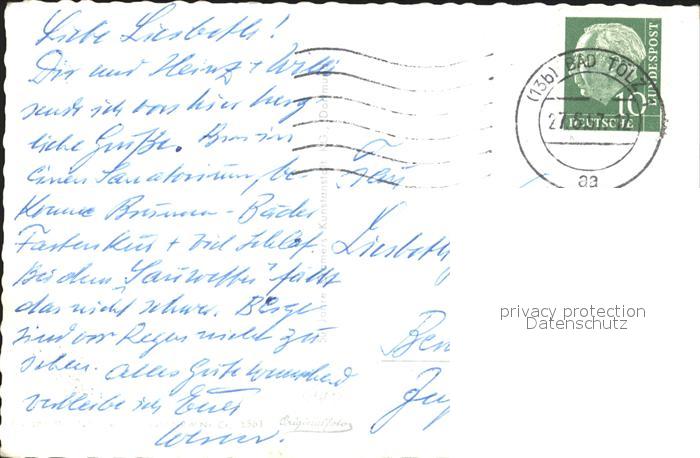 Liebe Liesbeth!
Dir und Heinz + Willi
sende ich von hier herz-
liche Grüße. Bin in
einem Sanatorium, be-
komme Brunnen-Bäder
Fastenkur + viel Schlaf.
Bei dem "Sauwetter" fällt
das nicht schwer. Berge
sind vor Regen nicht zu
sehen. Alles Gute wünschend
verbleibe ich Euer
Frau
Liesbeth
privacy protection
Datenschutz
(13b) BAD TÖLZ
27
aa
10
DEUTSCHE
BUNDESPOST
Originalfoto